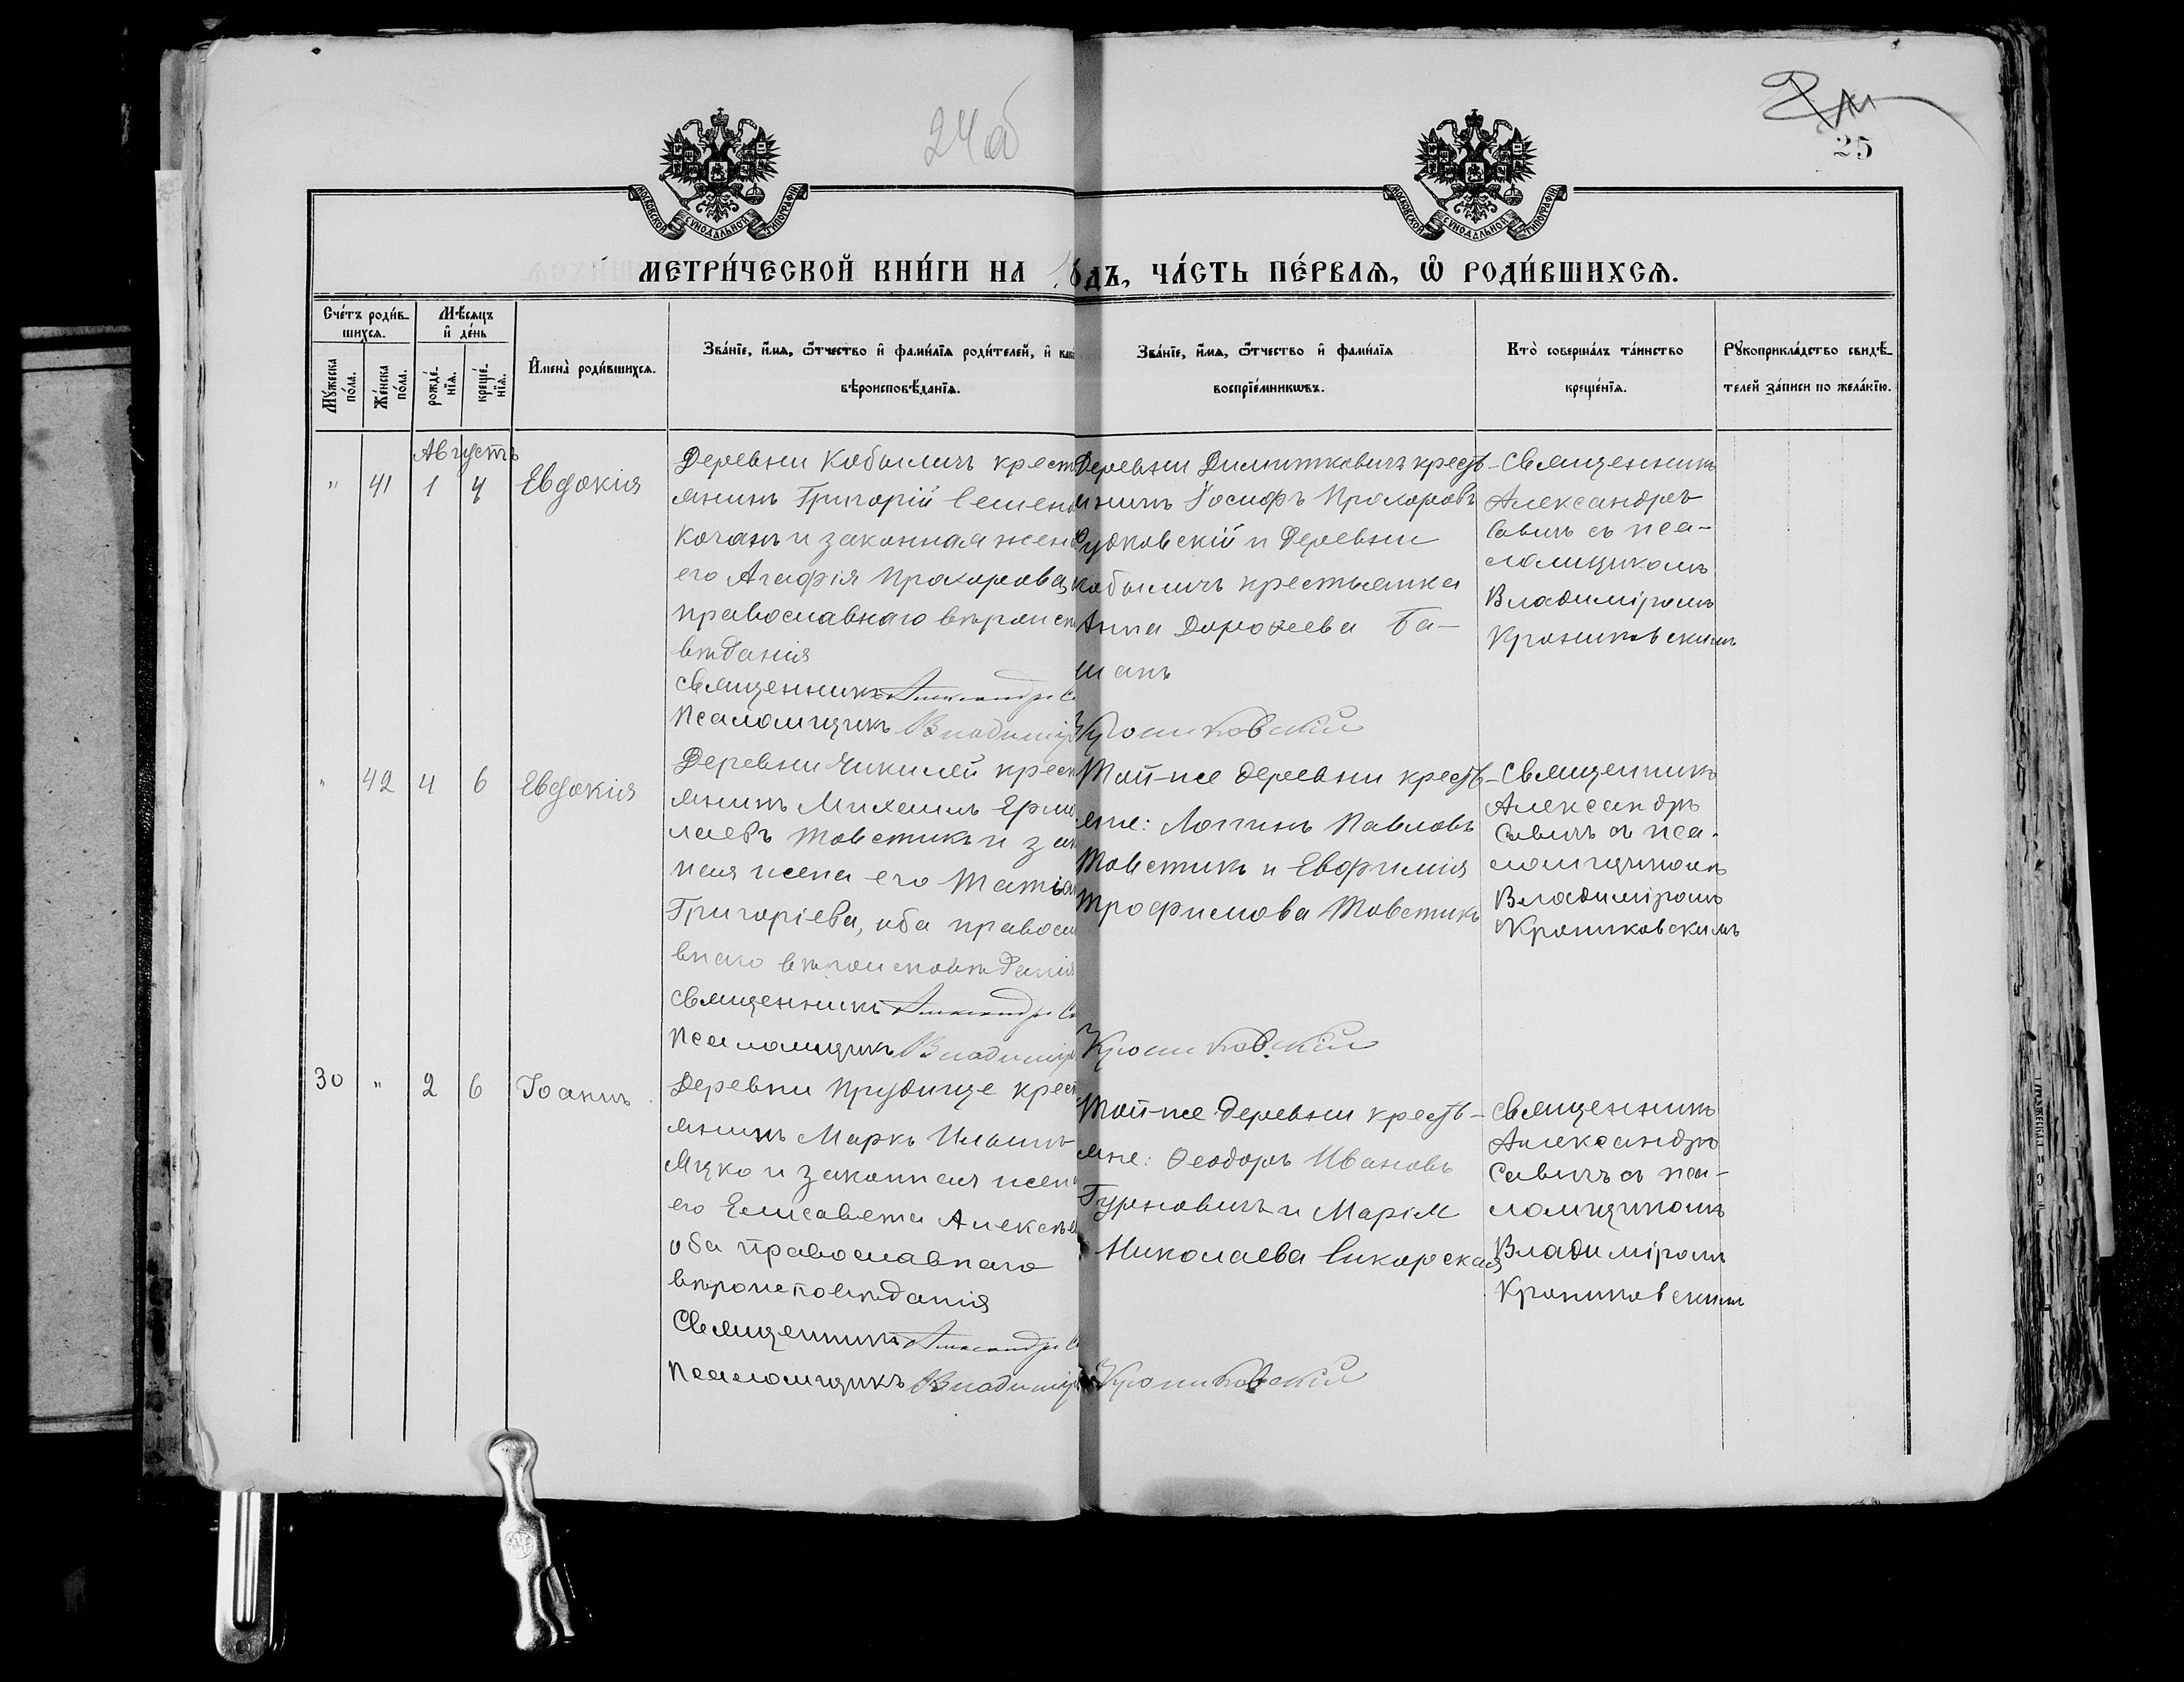 24об
25
МОСКОВСКОЙ СѴНОДАЛЬНОЙ ТИПОГРАФІИ
МОСКОВСКОЙ СѴНОДАЛЬНОЙ ТИПОГРАФІИ
МЕТРИ́ЧЕСКОЙ КНИ́ГИ НА
о́дъ, ЧА́СТЬ ПЕ́РВАѦ, Ѡ҆ РОДИ́ВШИХСѦ.
Сче́тъ роди́в-
шихсѧ.
Мѣ́сѧцъ
и҆ де́нь
Мꙋ́жеска
по́ла.
Же́нска
по́ла.
рожде́-
нїѧ.
креще́-
нїѧ.
И҆мена̀ роди́вшихсѧ.
Зва́нїе, и҆́мѧ, ѻ҆́тчество и҆ фами́лїѧ роди́телей, и҆ как
вѣроисповѣ́данїѧ.
Зва́нїе, и҆́мѧ, ѻ҆́тчество и҆ фами́лїѧ
воспрїе́мникѡвъ.
Кто̀ соверша́лъ та́инство
креще́нїѧ.
Рꙋкоприкла́дство свидѣ́-
телей за́писи по жела́нїю.
Августъ
" 41 1 4 Евдокія
Деревни Кобыличъ крест
янинъ Григорій Семено
Кочанъ и законная жена
его Агафія Прохорова,
православнаго вѣроиспо
вѣданія
Священникъ Александръ Са
Псаломщикъ Владиміръ
Деревни Димитковичъ кресть-
янинъ Іосифъ Прохоровъ
Рудковскій и деревни
Кобыличъ крестьянка
Анна Дорофеева Ба-
шанъ
Крониковскій
Священникъ
Александръ
Савичъ съ пса-
ломщикомъ
Владиміромъ
Крониковскимъ
" 42 4 6 Евдокія
Деревни Чикилей крест
янинъ Михаилъ Ермо
лаевъ Товстикъ и зако
ная жена его Татіа
Григоріева, оба правосла
внаго вѣроисповѣданія
Священникъ Александръ Са
Псаломщикъ Владиміръ
Той-же деревни кресть-
яне: Логгинъ Павловъ
Товстикъ и Евфимія
Трофимова Товстикъ
Крониковскій
Священникъ
Александръ
Савичъ съ пса-
ломщикомъ
Владиміромъ
Крониковскимъ
30 " 2 6 Іоаннъ
Деревни Прудище крест
янинъ Маркъ Ильинъ
Мцко и законная жена
его Елисавета Алексѣев
оба православнаго
вѣроисповѣданія
Священникъ Александръ Са
Псаломщикъ Владиміръ
Той-же деревни кресть-
яне: Ѳеодоръ Ивановъ
Гурновичъ и Марія
Николаева Сикорская
Крониковскій
Священникъ
Александръ
Савичъ съ пса-
ломщикомъ
Владиміромъ
Крониковскимъ